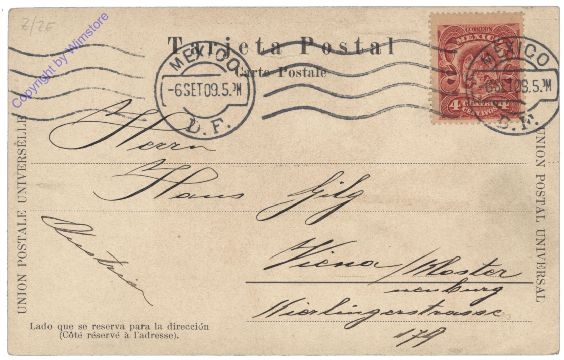 Z/ZE
Copyright by Wimstore
Tarjeta Postal
Carte Postale
MEXICO
-6SET09.5.PM
D.F.
CORREOS
MEXICO
4 CENTAVOS 4
MEXICO
-6SET09.5.PM
D.F.
UNION POSTALE UNIVERSELLE
UNION POSTAL UNIVERSAL
Herrn
Hans Gilg
Austria
Viena/Kloster
neuburg
Kierlingerstrasse
179
Lado que se reserva para la dirección
(Côté réservé à l'adresse).